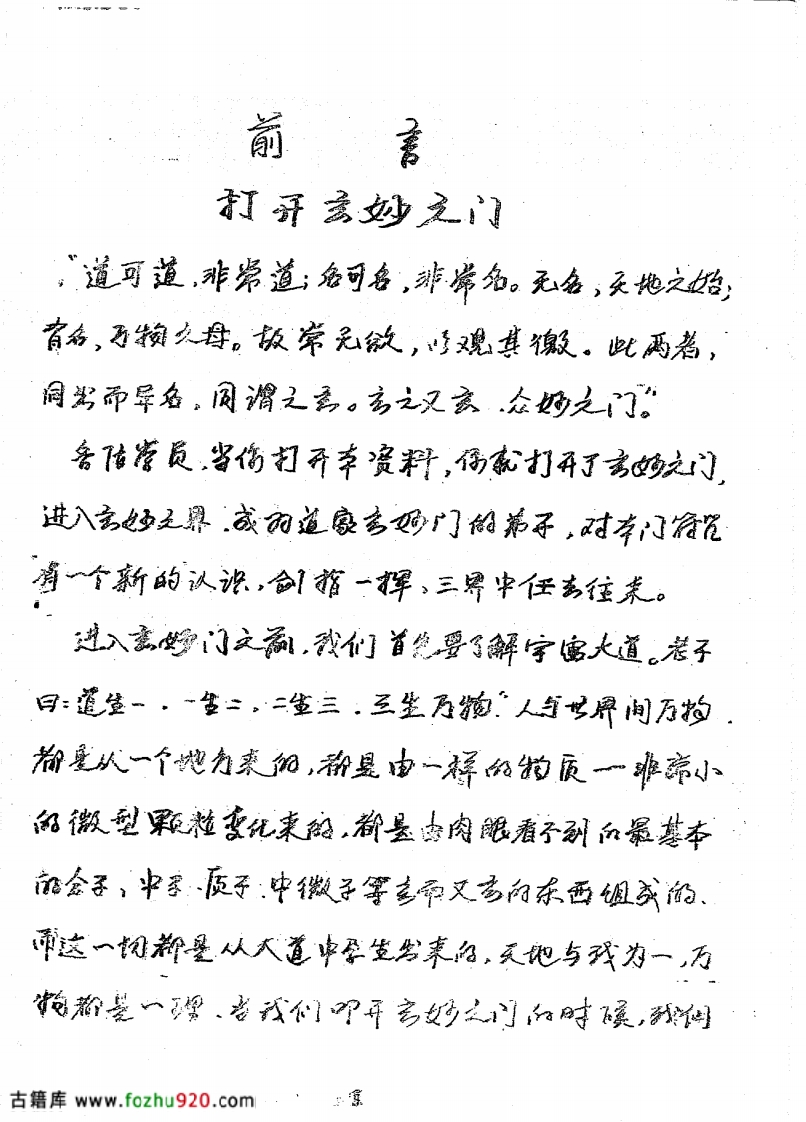 前言
打开玄妙之门
“道可道，非常道；名可名，非常名。无名，天地之始；
有名，万物之母。故常无欲，以观其徼。此两者，
同出而异名，同谓之玄。玄之又玄，众妙之门”。
各位学员，当你打开本资料，你就打开了玄妙之门，
进入玄妙之界，成为道家玄妙门的弟子，对本门符咒
有一个新的认识，剑指一挥，三界中任去往来。
进入玄妙门之前，我们首先要了解宇宙大道。老子
曰：道生一，一生二，二生三，三生万物”人与世界间万物，
都是从一个地方来的，都是由一样的物质一非常小
的微型颗粒变化来的，都是由肉眼看不到的最基本
的分子、中子、质子、中微子等玄而又玄的东西组成的，
而这一切都是从大道中产生出来的，天地与我为一，万
物都是一理，当我们叩开玄妙之门的时候，我们
古籍库 www.fozhu920.com